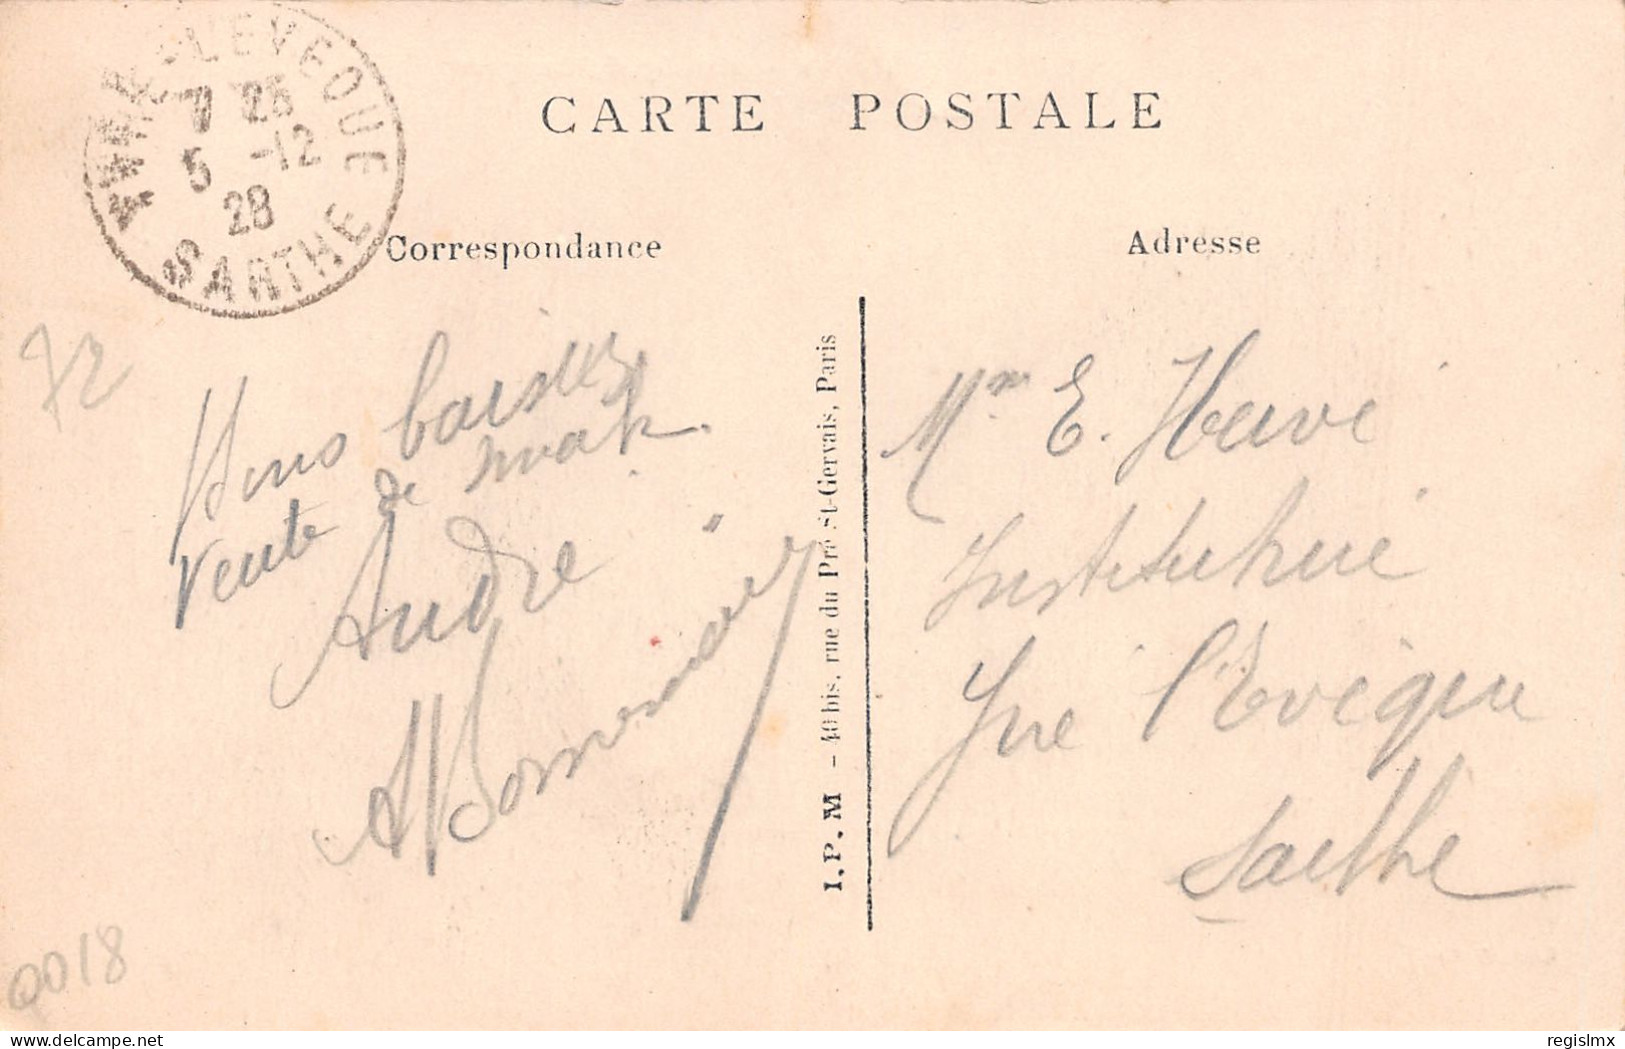 YVRE-L'EVEQUE
7 25
5 -12
28
SARTHE
CARTE POSTALE
Correspondance
Adresse
72
Vous
vente de
André
I. P. M – 40 bis, rue du Pré St-Gervais, Paris
Mme E. Hervé
Institutrice
Yvré l'Evêque
Sarthe
0018
regislmx
delcampe.net